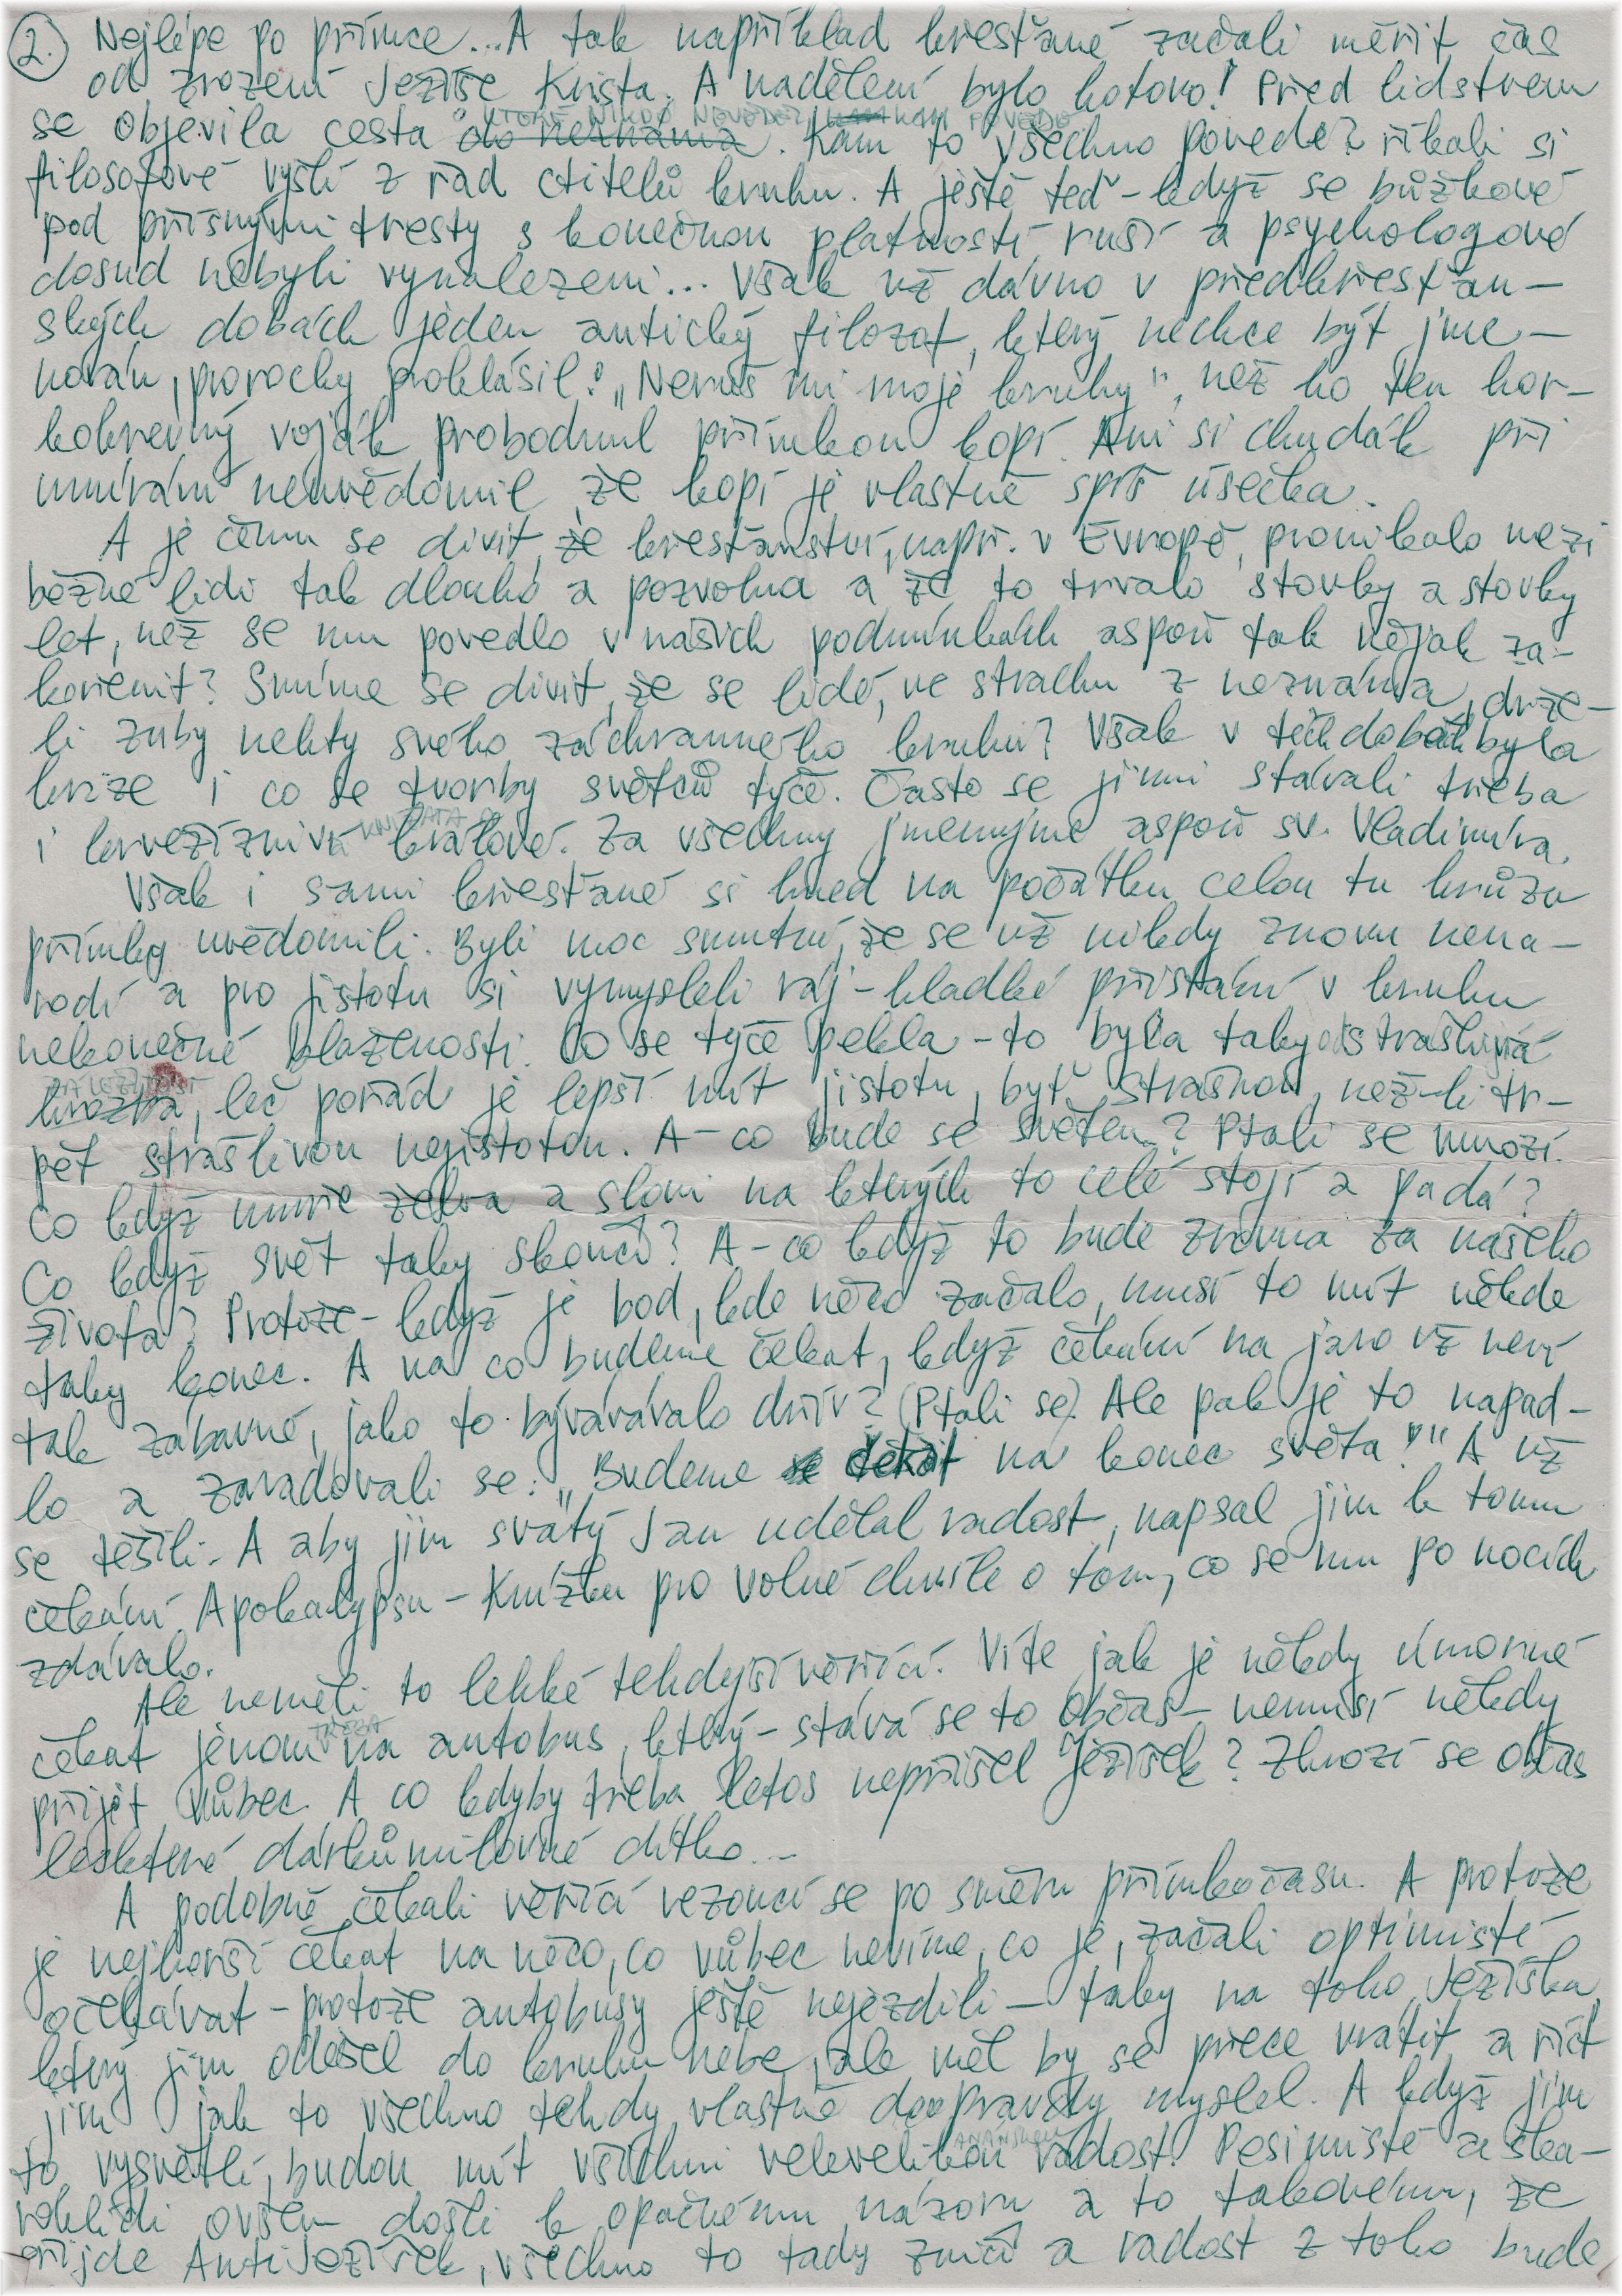 2. Nejlépe po přímce... A tak například křesťané začali měřit čas
od zrození Ježíše Krista. A nadělení bylo hotovo! Před lidstvem
KTERÉ NIKDO NEVĚDĚL KAM POVEDE
se objevila cesta do neznáma. Kam to všechno povede? říkali si
filosofové vyšlí z řad ctitelů kruhu. A ještě teď - když se bůžkové
pod přísnými tresty s konečnou platností ruší a psychologové
dosud nebyli vynalezeni... Však už dávno v předkřesťan-
ských dobách jeden antický filozof, který nechce být jme-
nován, prorocky prohlásil: „Neruš mi moje kruhy", než ho ten hor-
kokrevný voják probodnul přímkou kopí. Ani si chudák při
umírání neuvědomil, že kopí je vlastně spíš úsečka.
A je čemu se divit, že křesťanství, např. v Evropě, pronikalo mezi
běžné lidi tak dlouho a pozvolna a že to trvalo stovky a stovky
let, než se mu povedlo v našich podmínkách aspoň tak nějak za-
kořenit? Smíme se divit, že se lidé, ve strachu z neznáma, drže-
li zuby nehty svého záchranného kruhu? Však v těch dobách byla
krize i co se tvorby světců týče. Často se jimi stávali třeba
KNÍŽATA A
i krvežízniví králové. Za všechny jmenujme aspoň sv. Vladimíra.
Však i sami křesťané si hned na počátku celou tu hrůzu
přímky uvědomili. Byli moc smutní, že se už nikdy znovu nena-
rodí a pro jistotu si vymysleli ráj - hladké přistání v kruhu
nekonečné blaženosti. Co se týče pekla - to byla taky odstrašující
ZÁLEŽITOST
hrozba, leč pořád je lepší mít jistotu, byť strašnou, než-li tr-
pět strašlivou nejistotou. A - co bude se světem? Ptali se mnozí.
Co když umře želva a sloni na kterých to celé stojí a padá?
Co když svět taky skončí? A - co když to bude zrovna za našeho
života? Protože - když je bod, kde něco začalo, musí to mít někde
taky konec. A na co budeme čekat, když čekání na jaro už není
tak zábavné, jako to bývávávalo dřív? (Ptali se). Ale pak je to napad-
lo a zaradovali se: „Budeme se čekat na konec světa!" A už
se těšili. A aby jim svatý Jan udělal radost, napsal jim k tomu
čekání Apokalypsu - Knížku pro volné chvíle o tom, co se mu po nocích
zdávalo.
Ale neměli to lehké tehdejší věřící. Víte jak je někdy úmorné
TŘEBA
čekat jenom na autobus, který - stává se to občas - nemusí někdy
přijet vůbec. A co kdyby třeba letos nepřišel Ježíšek? Zhrozí se občas
leckteré dárkůmilovné dítko...
A podobně čekali věřící vezoucí se po směru přímkočasu. A protože
je nejhorší čekat na něco, co vůbec nevíme, co je, začali optimisté
očekávat - protože autobusy ještě nejezdili - taky na toho Ježíška,
který jim odešel do kruhu nebe, ale měl by se přece vrátit a říct
jim jak to všechno tehdy vlastně doopravdy myslel. A když jim
to vysvětlí, budou mít všichni velevelikou radost. Pesimisté a ška-
rohlídi ovšem došli k opačnému názoru a to takovému, že
přijde AntiJežíšek, všechno to tady zničí a radost z toho bude